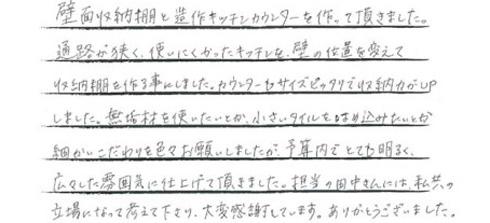 壁面収納棚と造作キッチンカウンターを作って頂きました。
通路が狭く、使いにくかったキッチンを、壁の位置を変えて
収納棚を作る事にしました。カウンターもサイズピッタリで収納力がUP
しました。無垢材を使いたいとか、小さいタイルをはめ込みたいとか
細かいこだわりを色々お願いしましたが、予算内でとても明るく、
広々した雰囲気に仕上げて頂きました。担当の田中さんには、私共の
立場になって考えて下さり、大変感謝しています。ありがとうございました。